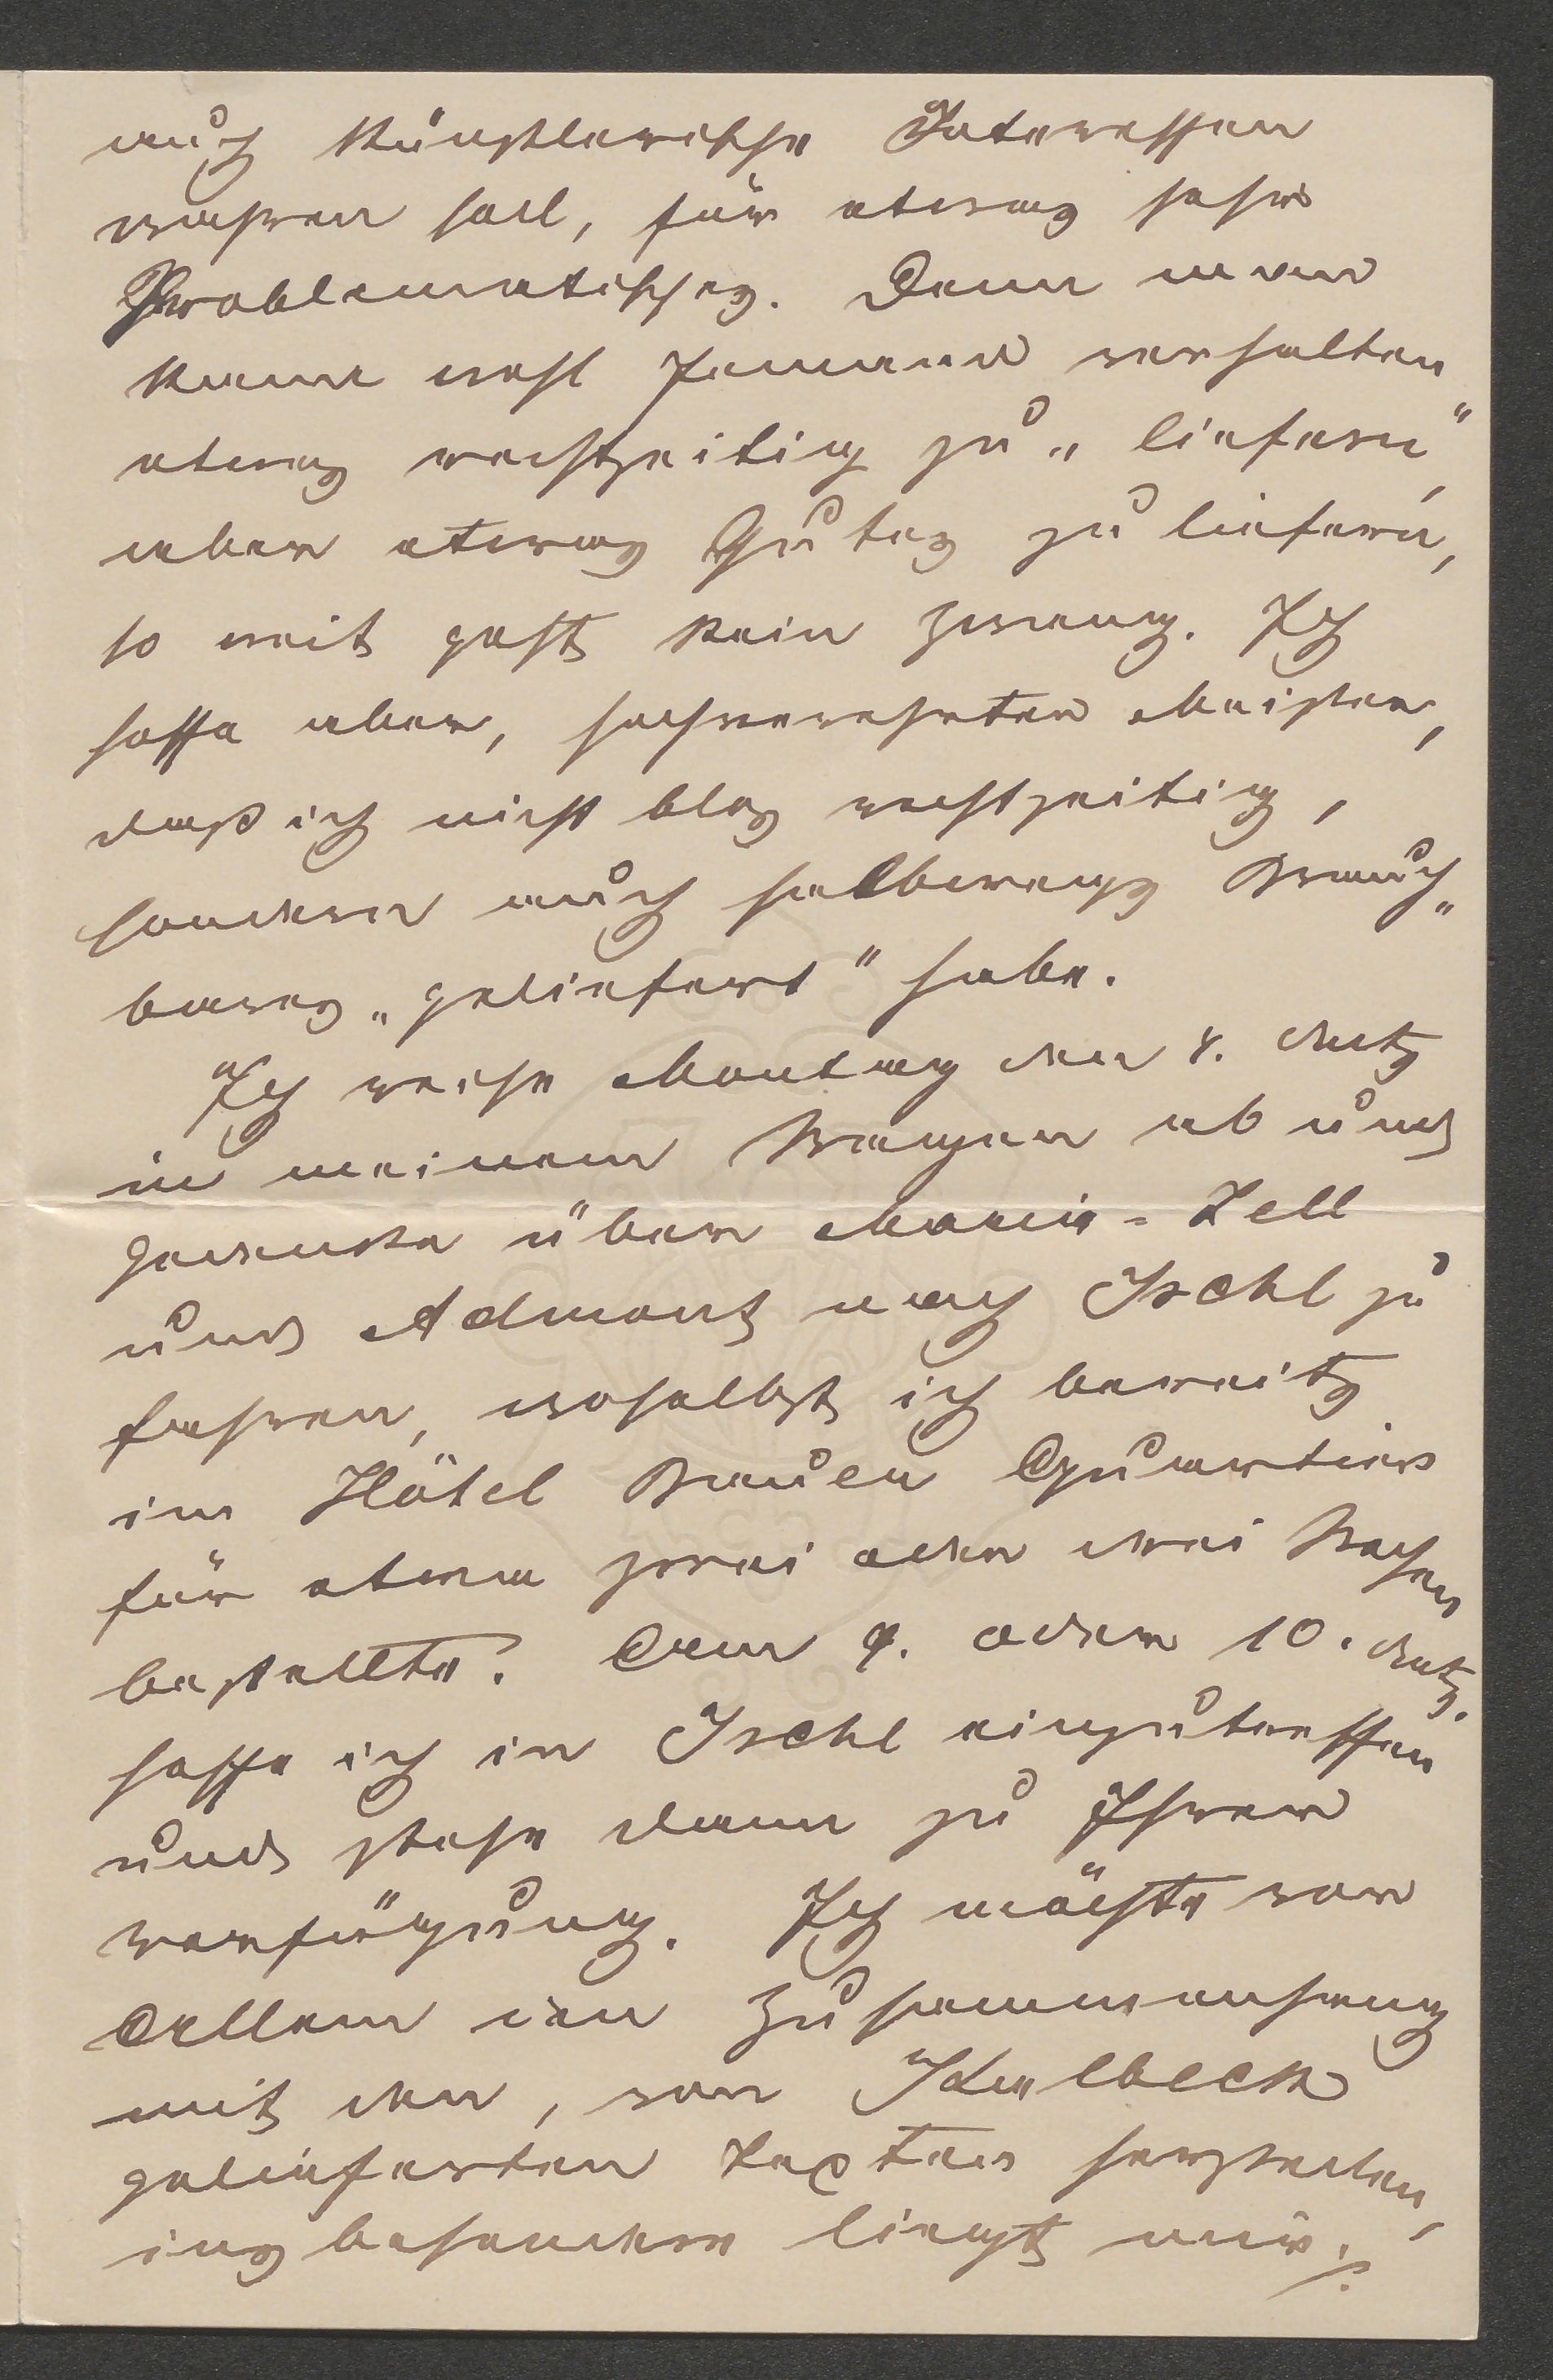 auch künstlerische Interessen
wahren soll, für etwas sehr
Problematisches. Denn man
kann wohl Jemand verhalten
etwas rechtzeitig zu „liefern“,
aber etwas Gutes zu liefern,
so weit geht kein Zwang. Ich
hoffe aber, hochverehrter Meister,
daß ich nicht blos rechtzeitig,
sondern auch halbwegs Brauch„
bares „geliefert“ habe.
Ich reise Montag den 8. dMts
in meinem Wagen ab und
gedenke über Maria-Zell
und Admont nach Ischl zu
fahren, woselbst ich bereits
im Hôtel Bauer Quartier
für etwa zwei oder drei Wochen
bestellte. Am 9. oder 10. dMts.
hoffe ich in Ischl einzutreffen
und stehe dann zu Ihrer
Verfügung. Ich möchte vor
Allem den Zusammenhang
mit den, von Kalbeck
gelieferten Texten herstellen,
insbesondere liegt mir ./.